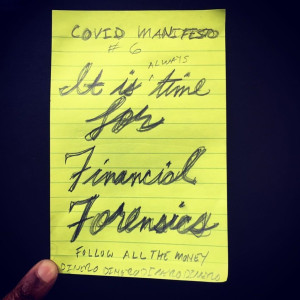 COVID MANIFESTO
# 6
ALWAYS
It is time
for
Financial
Forensics
FOLLOW ALL THE MONEY
DINERO DINERO DINERO DINERO